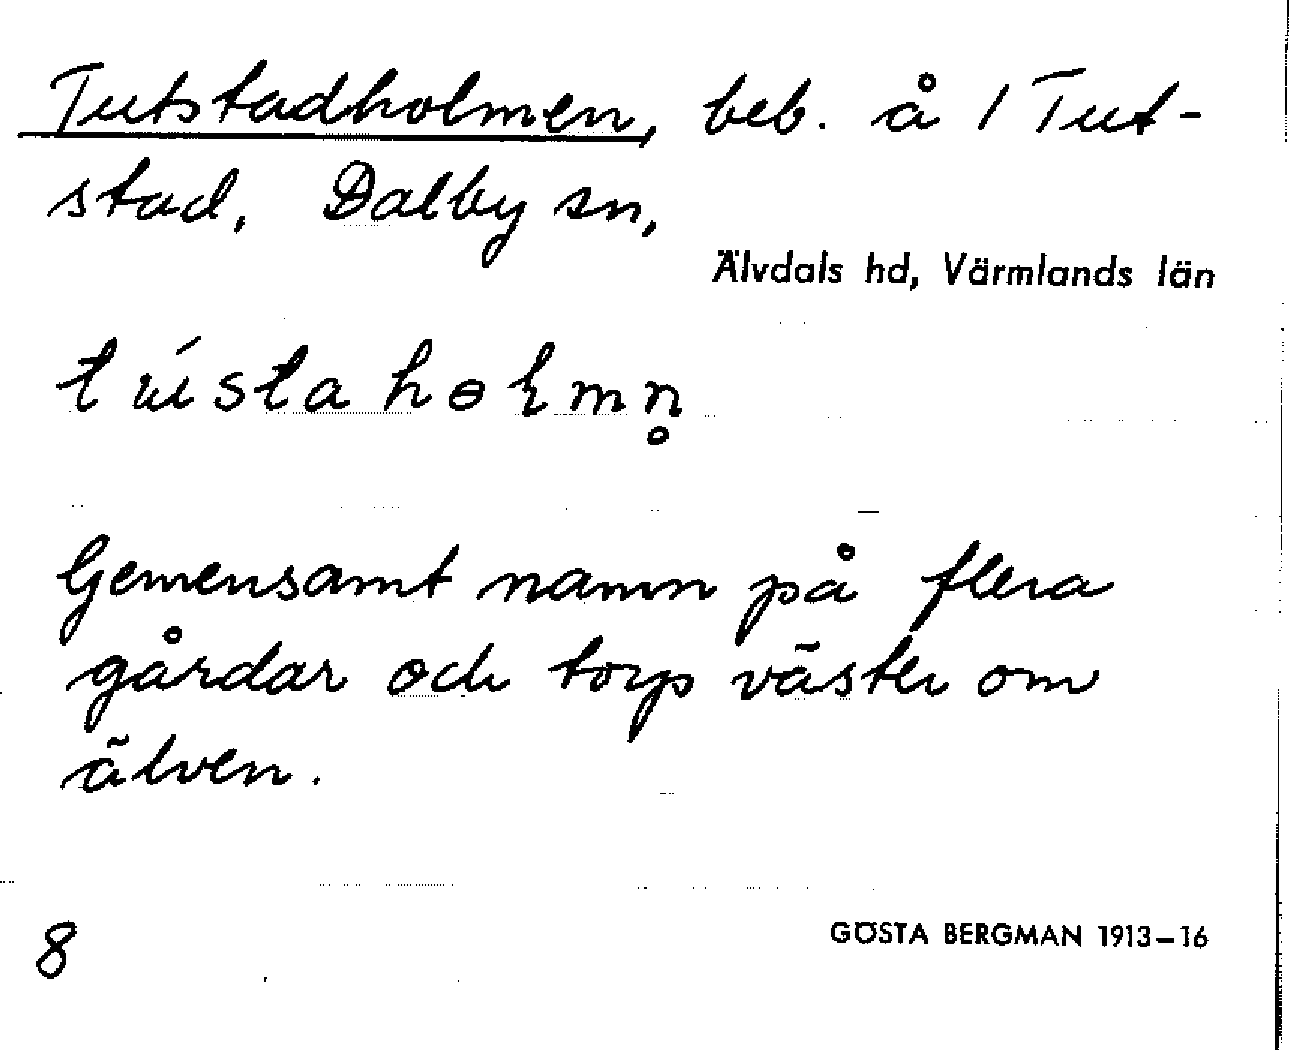 Tutstadholmen, beb. å 1 Tut-
stad, Dalby sn,
Älvdals hd, Värmlands län
Gemensamt namn på flera
gårdar och torp väster om
älven.
8
GÖSTA BERGMAN 1913–16